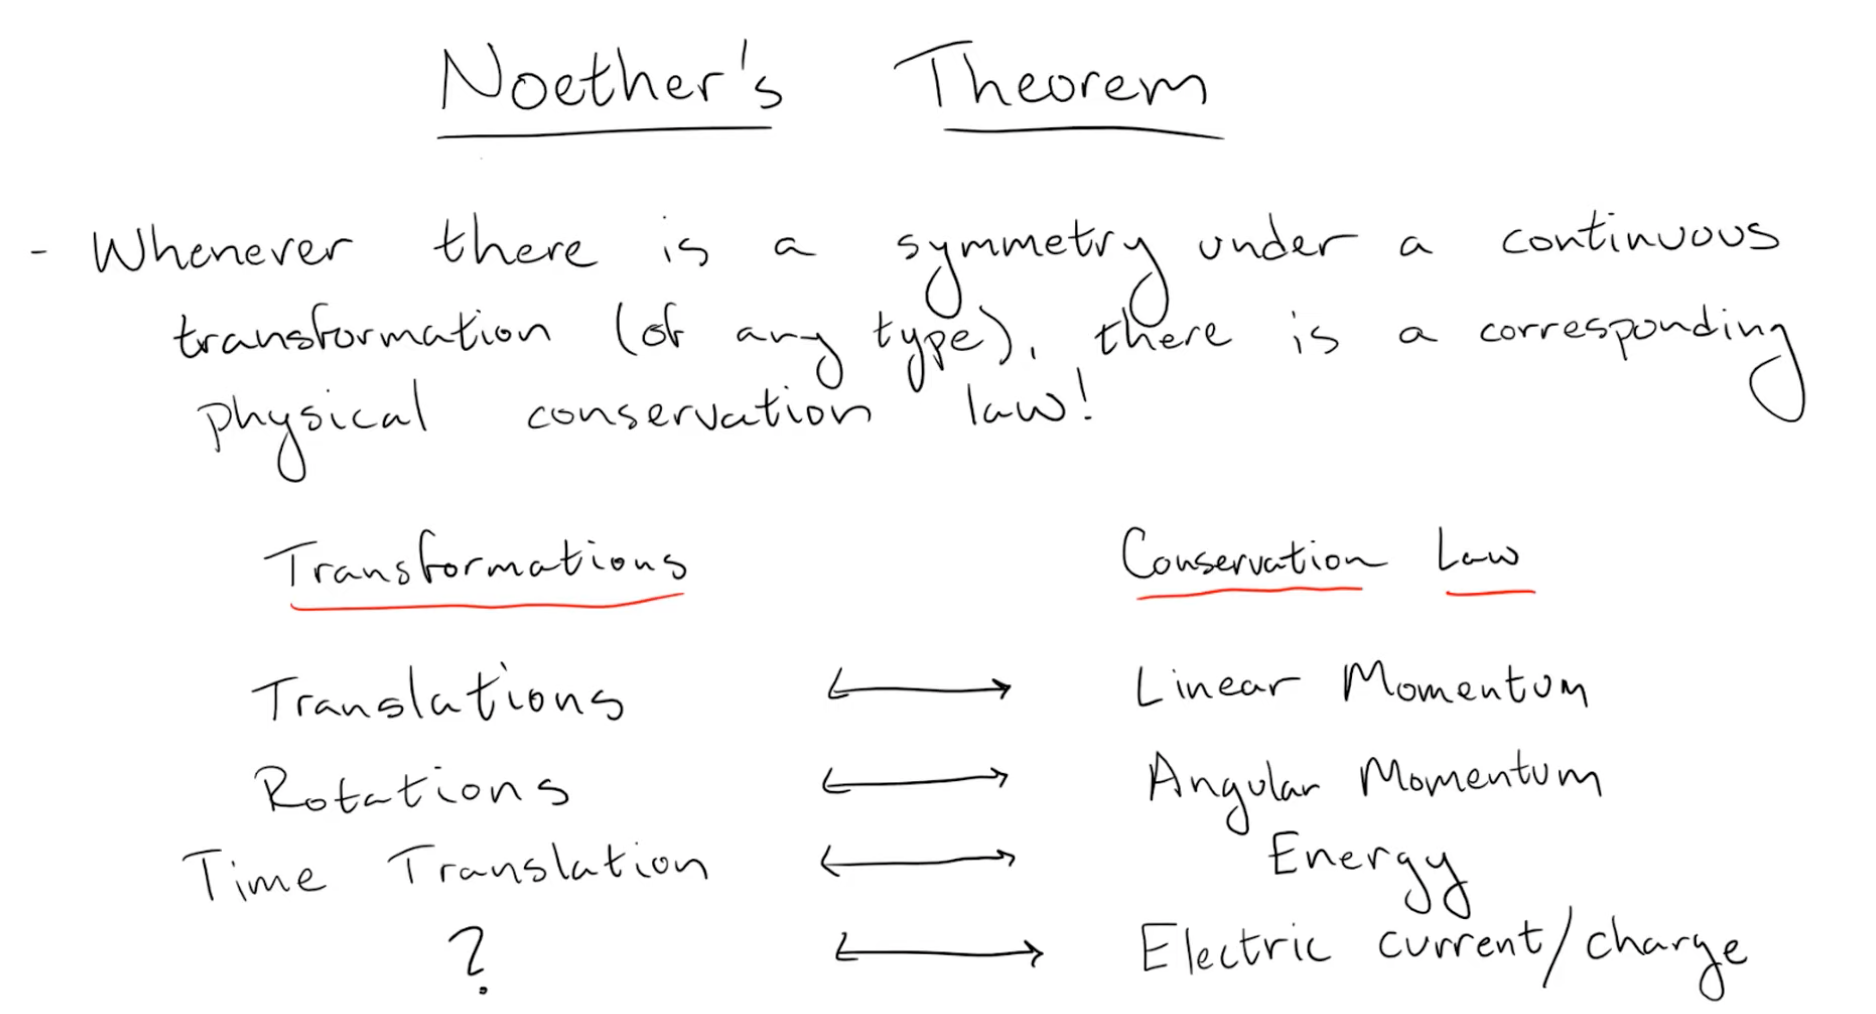 Noether's Theorem
- Whenever there is a symmetry under a continuous
transformation (of any type), there is a corresponding
physical conservation law!
Transformations Conservation Law
Translations ↔ Linear Momentum
Rotations ↔ Angular Momentum
Time Translation ↔ Energy
? ↔ Electric current/charge